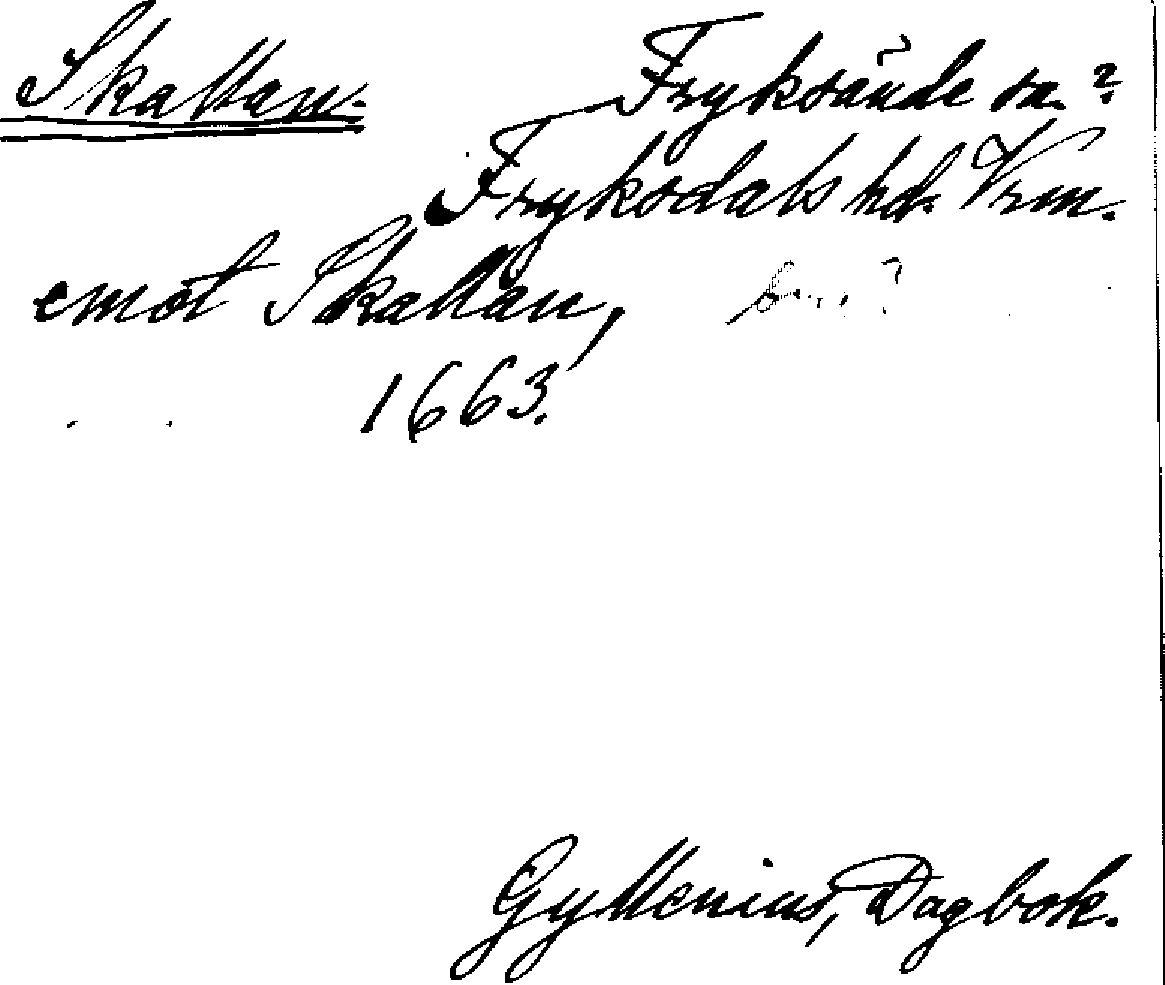 Skallan.
Fryksände sn.?
Fryksdals hd. Vrm.
emot Skallan,
1663.
Gyllenius, Dagbok.